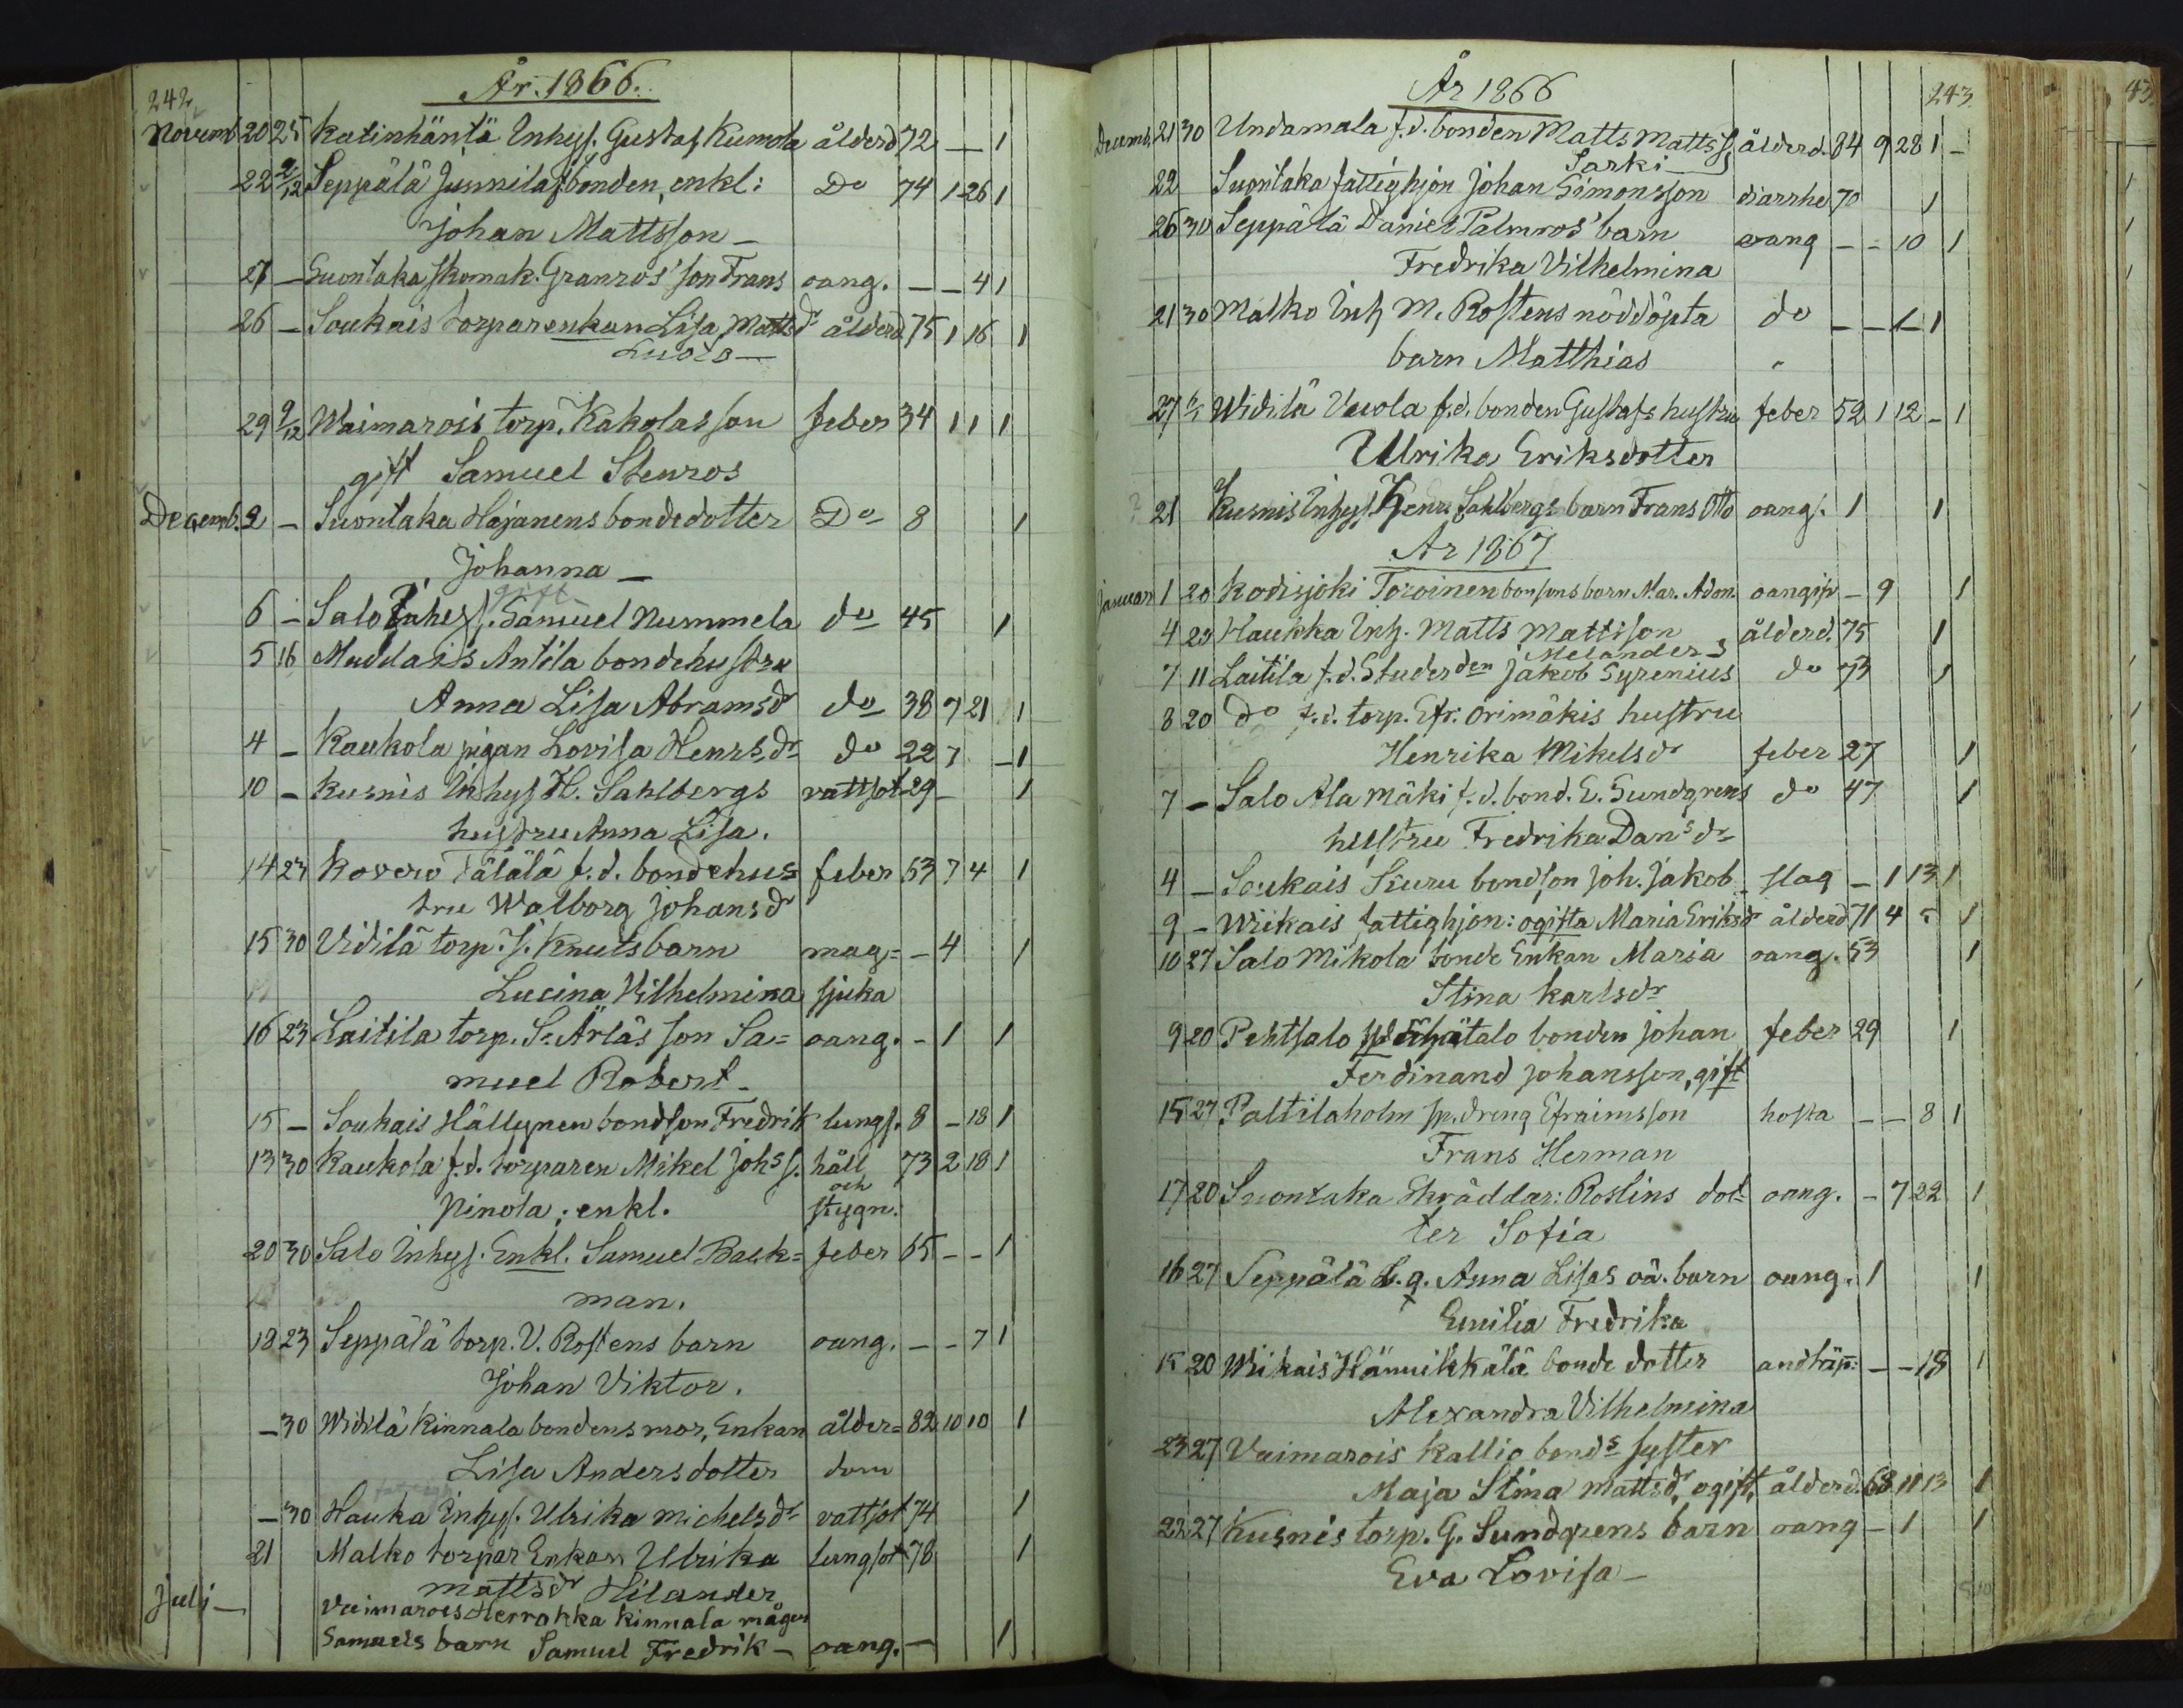 242
År. 1866.
Novemb. 20 25 Katinhäntä Inhys. Gustaf Kumola ålderd 72 — 1
22 2/12 Seppälä Junnila f. bonden, enkl: Do 74 1 26 1
Johan Mattsson —
27 — Suontaka skomak. Granros' son Frans oang. — — 4 1
26 — Soukais torparenkan Lisa Mattsdr ålderd. 75 1 16 1
Luoto —
29 9/12 Waimarois torp. Kakolas son feber 34 1 1 1
gift Samuel Stenros
Decemb. 2 — Suontaka Hajanens bondedotter Do 8 1
Johanna —
gift
6 — Salo Inhys. Samuel Nummela do 45 1
5 16 Muddais Antila bondehustru
Anna Lisa Abramsdr do 38 7 21 1
4 — Kaukola pigan Lovisa Henrsdr do 22 7 — 1
10 — Kusnis Inhys H. Sahlbergs vattsot 29 — 1
hustru Anna Lisa.
14 23 Kovero Tälälä f.d. bondehus= feber 53 7 4 1
tru Walborg Johansdr
15 30 Vidilä torp. J. Knuts barn mag= — 4 1
Lucina Vilhelmina sjuka
16 23 Laitila torp. S. Ärläs son Sa= oang. — 1 1
muel Robert —
15 — Soukais Hällynen bondson Fredrik lungs. 8 — 18 1
13 30 Kaukola f.d. torparen Mikel Johs s. håll 73 2 18 1
och
Ninola; enkl. stygn.
20 30 Salo Inhys. Enkl. Samuel Back= feber 65 — — 1
man.
18 23 Seppälä torp. V. Rostens barn oang. — — 7 1
Johan Viktor.
— 30 Widilä Kinnala bondens mor, Enkan ålder= 82 10 10 1
Lisa Andersdotter dom
— 30 Hauka Inhys. Ulrika Michelsdr vattsot 74 1
21 Malko torpar Enkan Ulrika lungsot 78 1
Mattsdr Hilander
Juli — Vaimarois Herrakka Kinnala mågen
Samuels barn Samuel Fredrik — oang. — 1
År 1866
243
Decemb. 21 30 Undamala f.d. bonden Matts Matts s. ålderd. 84 9 28 1 —
Sarki
22 Suontaka fattighjon Johan Simonsson diarrhe 70 1
26 30 Seppälä Daniel Palmros' barn oang — — 10 1
Fredrika Vilhelmina
21 30 Malko Inh M. Rostens nöddöpta do — — 1 — 1
barn Matthias
27 6/1 Widilä Vuola f.d. bonden Gustafs hustru feber 52 1 12 — 1
Ulrika Eriksdotter
21 Kusnis Inhys Henr. Sahlbergs barn Frans Otto oang. 1 1
År 1867
Januar 1 20 Kodisjoki Toroinen bonsons barn Mar. Adam. oangif — 9 1
4 20 Haukka Inh. Matts Mattsson ålderd. 75 1
Melander
7 11 Laitila f.d. Studerden Jakob Syrenius do 73 1
8 20 do f.d. torp. Efr. Orimäkis hustru
Henrika Mikelsdr feber 27 1
7 — Salo Ala Mäki f.d. bond. E. Sundgrens do 47 1
hustru Fredrika Dansdr
4 — Soukais Skuru bondson Joh. Jakob — slag — 1 13 1
9 — Wiikais fattighjon: ogifta Maria Eriksdr ålderd 71 4 1
10 27 Salo Mikola bonde Enkan Maria oang. 53 1
Stina Karlsdr
9 20 Pehtsalo bonden Johan feber 29 1
Ferdinand Johansson, gift
15 27 Paltilaholm sp. dreng Efraimsson hosta — — 8 1
Frans Herman
17 20 Suontaka Skräddar: Roslins dot= oang. — 7 22 1
ter Sofia
16 27 Seppälä L. q. Anna Lisas oä. barn oang. 1 1
Emilia Fredrika
15 20 Wiikais Hännikkälä bonde dotter andtäp: — — 18 1
Alexandra Vilhelmina
23 27 Vaimarois Kallio bonds syster
Maja Stina Mattsdr, ogift, ålderd. 68 11 13 1
22 27 Kusnis torp. G. Sundgrens barn oang — 1 1
Eva Lovisa —